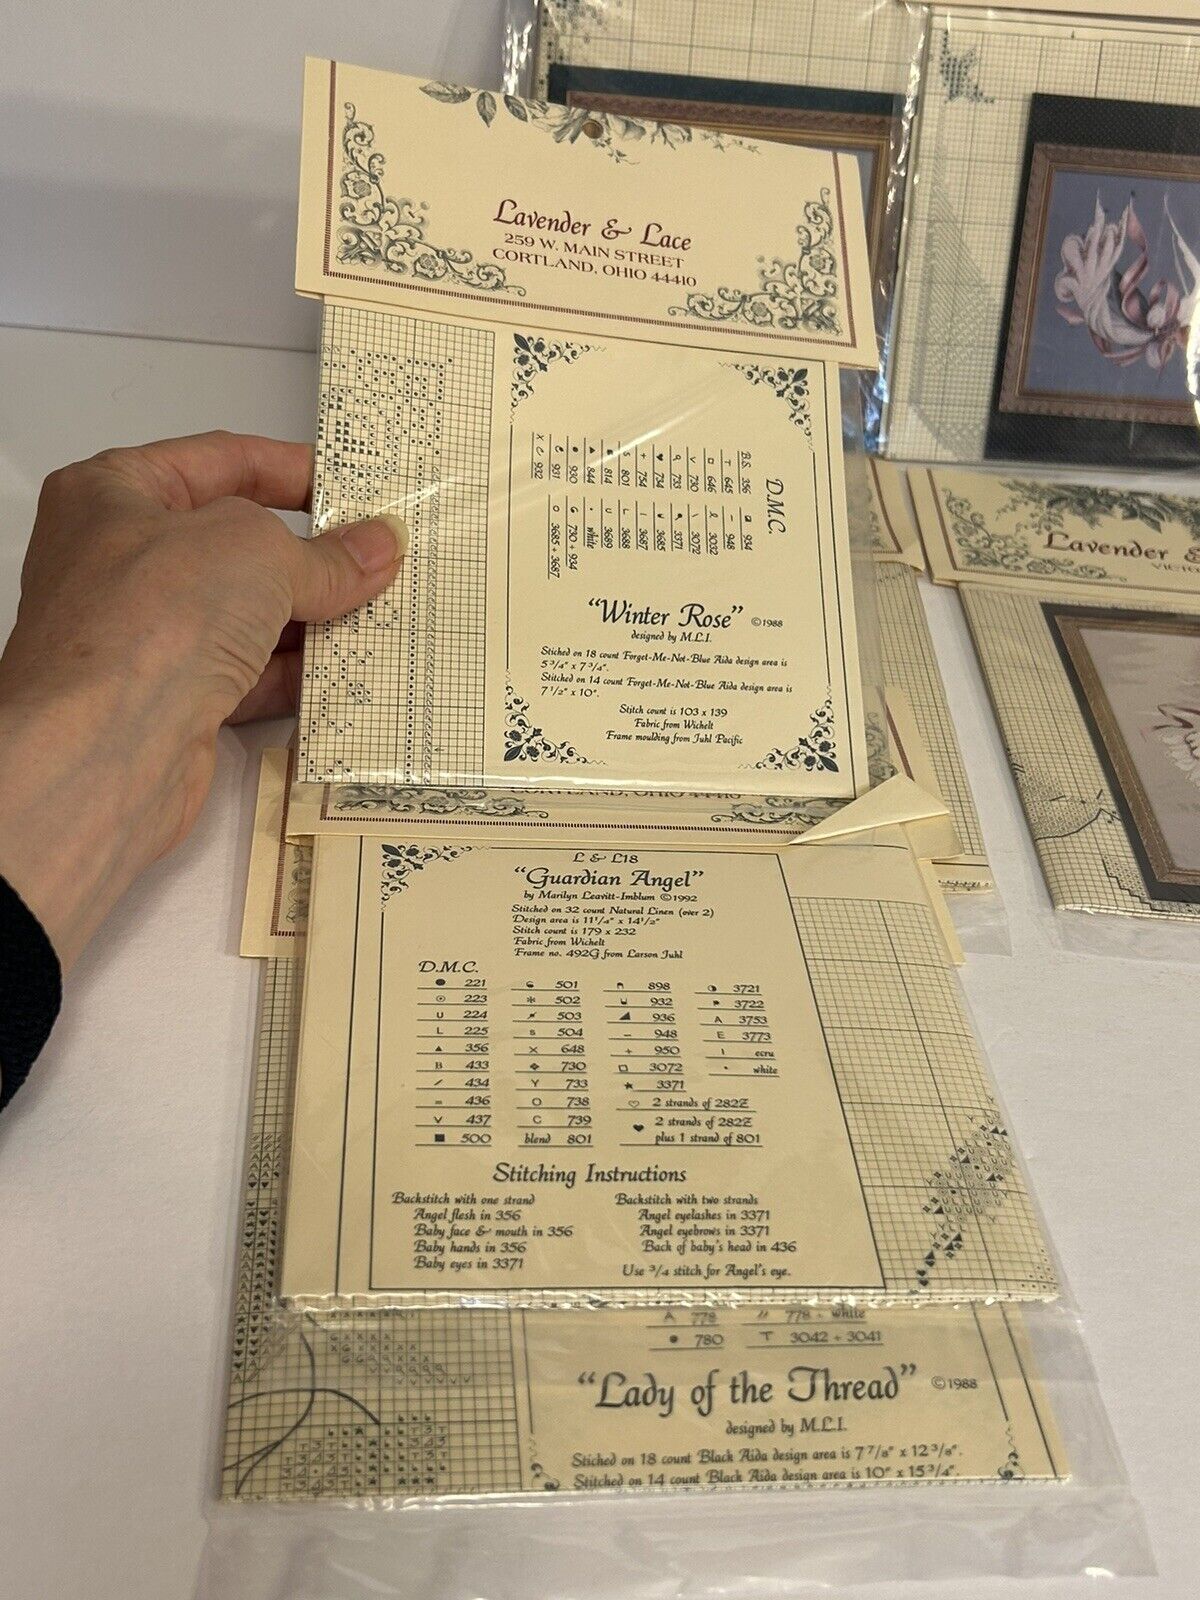 Lavender & Lace
259 W. MAIN STREET
CORTLAND, OHIO 44410
D.M.C.
B.S. 356
T 645
646
V 720
733
734
+ 754
801
814
844
930
931
X 932
934
– 948
3032
\ 3072
3371
3685
3687
L 3688
U 3689
• white
G 730 + 934
O 3685 + 3687
“Winter Rose” ©1988
designed by M.L.I.
Stiched on 18 count Forget-Me-Not-Blue Aida design area is
5 3/4" x 7 3/4".
Stitched on 14 count Forget-Me-Not-Blue Aida design area is
7 1/2" x 10".
Stitch count is 103 x 139
Fabric from Wichelt
Frame moulding from Juhl Pacific
CORTLAND, OHIO 44410
L & L18
“Guardian Angel”
by Marilyn Leavitt-Imblum ©1992
Stitched on 32 count Natural Linen (over 2)
Design area is 11 1/4" x 14 1/2"
Stitch count is 179 x 232
Fabric from Wichelt
Frame no. 492G from Larson Juhl
D.M.C.
● 221
⊙ 223
U 224
L 225
▲ 356
B 433
/ 434
= 436
V 437
■ 500
501
✻ 502
503
S 504
X 648
730
Y 733
O 738
C 739
blend 801
898
932
936
– 948
+ 950
□ 3072
★ 3371
♡ 2 strands of 282Z
♥ 2 strands of 282Z
plus 1 strand of 801
◑ 3721
3722
A 3753
E 3773
I ecru
• white
Stitching Instructions
Backstitch with one strand
Angel flesh in 356
Baby face & mouth in 356
Baby hands in 356
Baby eyes in 3371
Backstitch with two strands
Angel eyelashes in 3371
Angel eyebrows in 3371
Back of baby's head in 436
Use 3/4 stitch for Angel's eye.
A 778
● 780
// 778 + White
T 3042 + 3041
“Lady of the Thread” ©1988
designed by M.L.I.
Stiched on 18 count Black Aida design area is 7 7/8" x 12 3/8".
Stitched on 14 count Black Aida design area is 10" x 15 3/4".
Lavender &